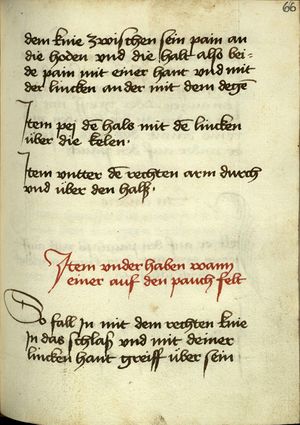 66
dem knie zwischen sein pain an
die hoden vnd die halt also bei-
de pain mit einer hant vnd mit
der lincken an der mit dem degē
Item pej dē hals mit dē lincken
über die kelen.
Item vntter dē rechten arm durch
vnd über den halß.
Item vnder haben wann
einer auf den pauch felt
Do fall In mit dem rechten knie
In das schlaß vnd mit deiner
lincken hant greiff über sein